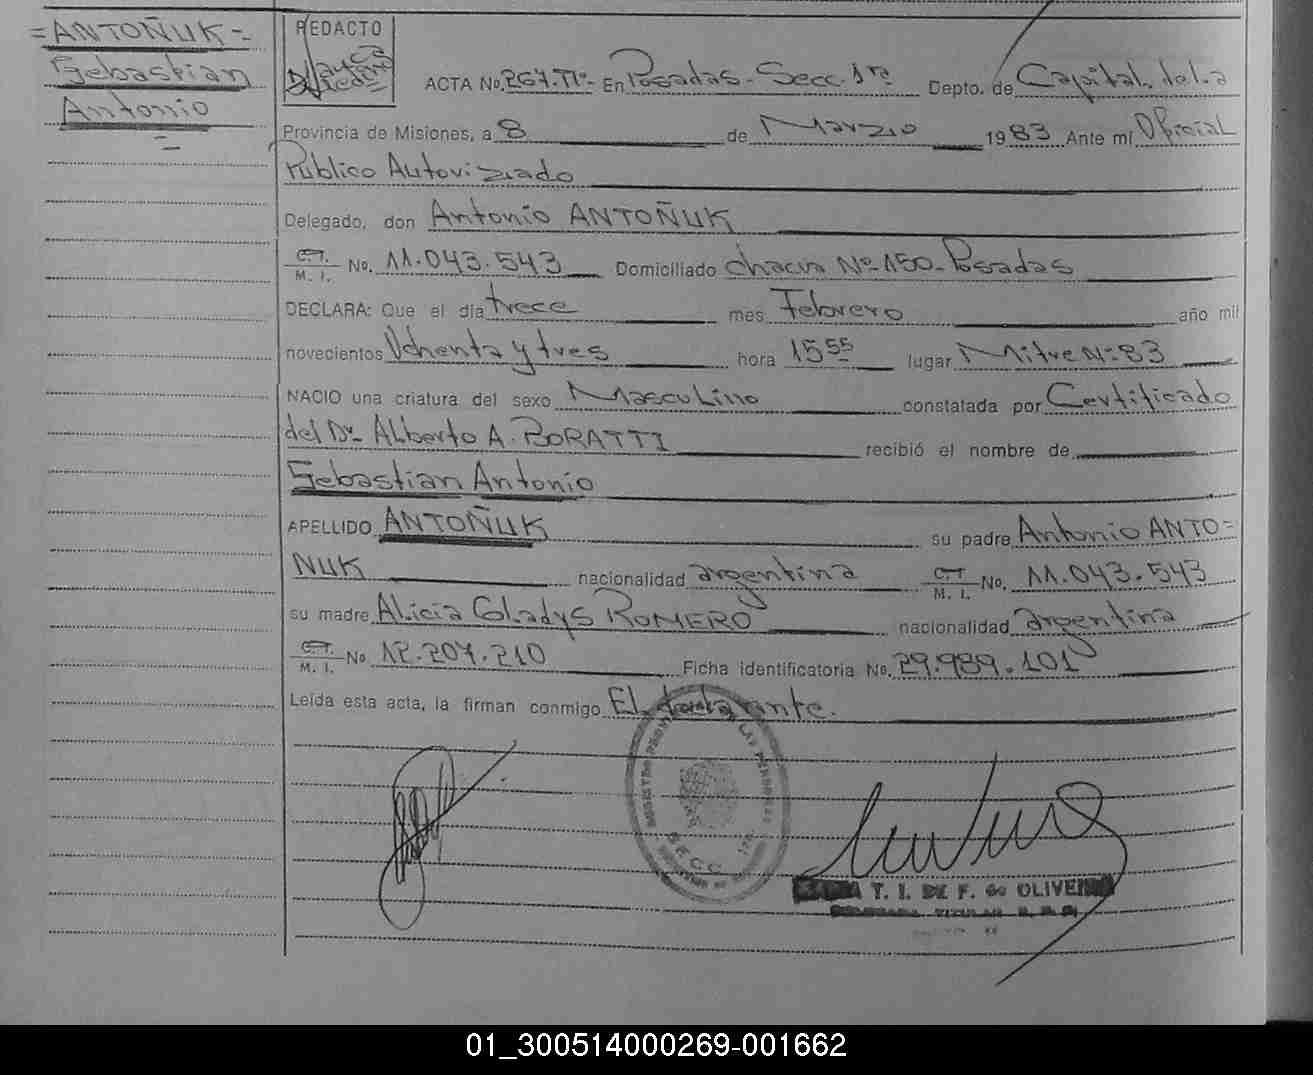 =ANTOÑUK=
Sebastian
Antonio
REDACTO
ACTA No. 267.Tº- En Posadas - Secc. 1ra Depto. de Capital de la
Provincia de Misiones, a 8 de Marzo 1983 Ante mí Oficial
Público Autorizado
Delegado, don Antonio ANTOÑUK
C.I. M. I. No. 11.043.543 Domiciliado chacra Nº 150 - Posadas
DECLARA: Que el día trece mes Febrero año mil
novecientos Ochenta y tres hora 15 55 lugar Mitre Nº 83
NACIO una criatura del sexo Masculino constatada por Certificado
del Dr. Alberto A. BORATTI recibió el nombre de
Sebastian Antonio
APELLIDO ANTOÑUK su padre Antonio ANTO=
ÑUK nacionalidad argentina C.I. M. I. No. 11.043.543
su madre Alicia Gladys ROMERO nacionalidad argentina
C.I. M. I. No 12.207.210 Ficha identificatoria No. 29.989.101
Leída esta acta, la firman conmigo El declarante.
SECC. 1ra
T. I. DE F. de OLIVEIRA
01_300514000269-001662